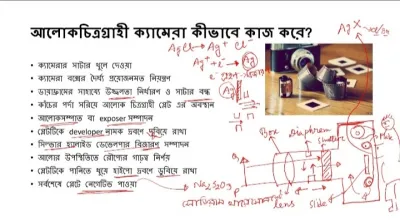 আলোকচিত্রগ্রাহী ক্যামেরা কীভাবে কাজ করে?
• ক্যামেরার সাটার খুলে দেওয়া
• ক্যামেরা বক্সের দৈর্ঘ্য প্রয়োজনমত নিয়ন্ত্রণ
• ডায়াফ্রামের সাহায্যে উজ্জ্বলতা নির্ধারণ ও সাটার বন্ধ
• কাঁচের পর্দা সরিয়ে আলোক চিত্রগ্রাহী প্লেট এর অবস্থান
• আলোকসম্পাত বা exposer সম্পাদন
• প্লেটটিকে developer নামক দ্রবণে ডুবিয়ে রাখা
• সিলভার হ্যালাইড ডেভেলপার বিজারণ সম্পাদন
• আলোর উপস্থিতিতে রৌপ্যের গাঢ়ত্ব নির্ণয়
• প্লেটটিকে পানিতে ধুয়ে হাইপো দ্রবণে ডুবিয়ে রাখা
• সর্বশেষে প্লেটে নেগেটিভ পাওয়া
AgCl → Ag⁺ Cl⁻
Ag⁺ + e⁻ → Ag
Ag X
Box
Diaphrem
Shutter
Lens
Slide
Na₂S₂O₃